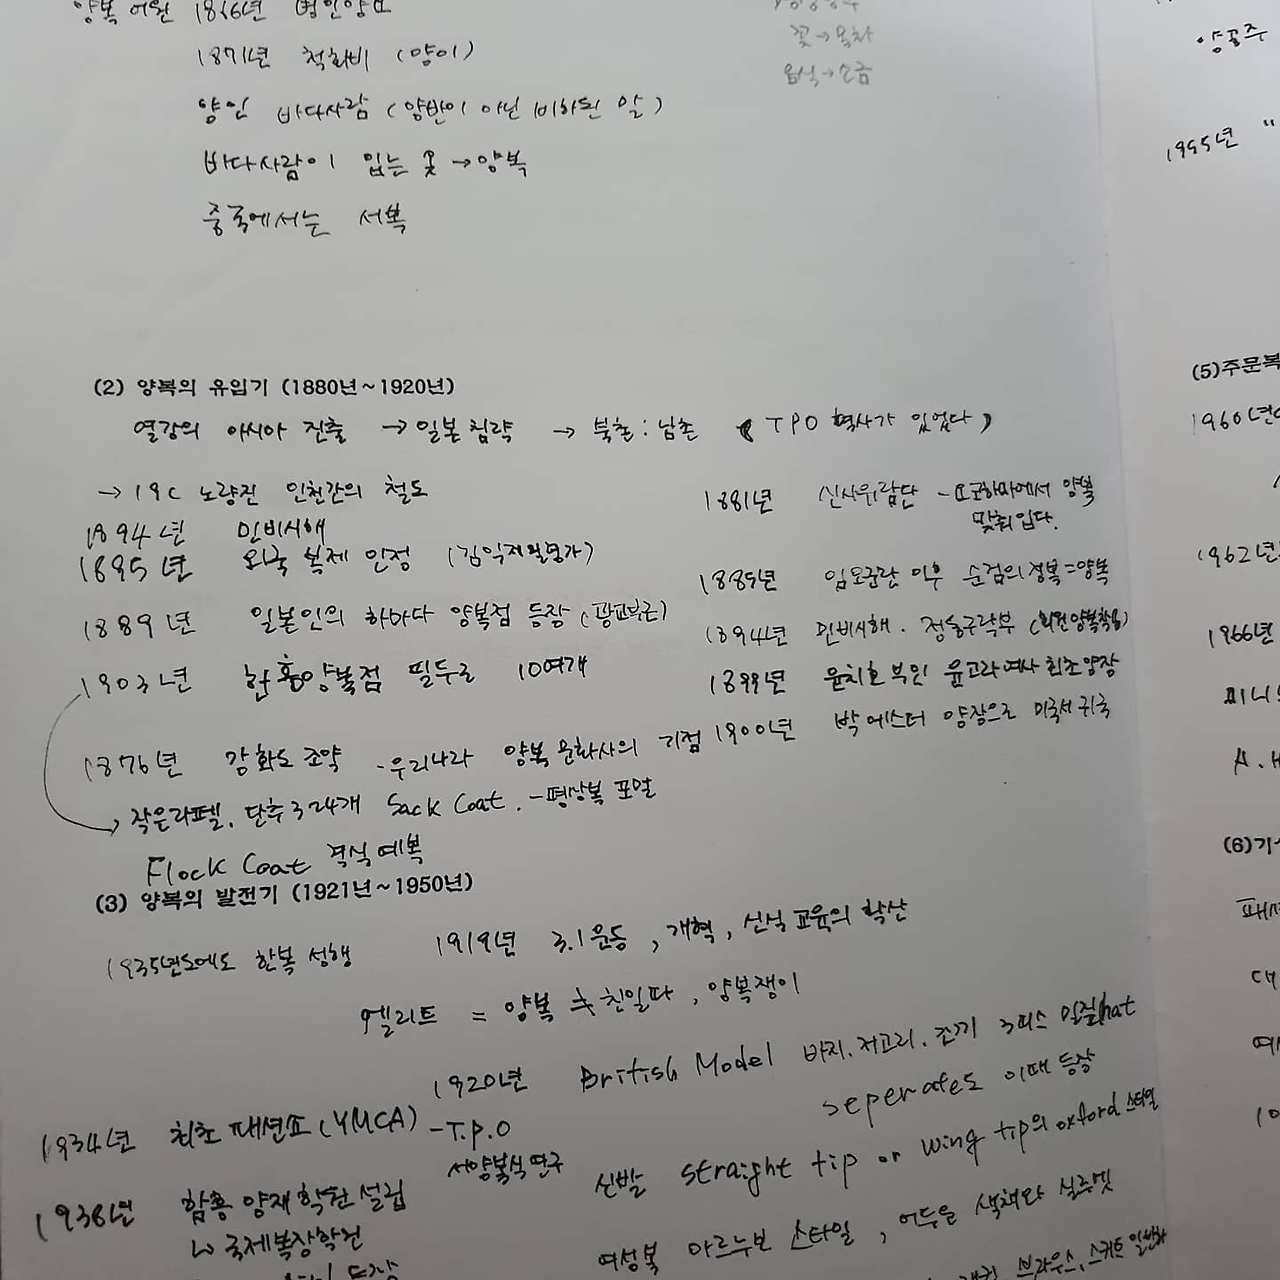 양복 어원 1866년 병인양요
1871년 척화비 (양이)
양인 바다사람 (양반이 아닌 비하된 말)
바다사람이 입는 옷 → 양복
중국에서는 서복
꽃→
음식→소금
양공주
1955년 "
(2) 양복의 유입기 (1880년~1920년)
열강의 아시아 진출 → 일본 침략 → 북촌 : 남촌 ( TPO 역사가 있었다 )
→ 19C 노량진 인천간의 철도
1894년 민비시해
1895년 외국 복제 인정 (김익제
1889년 일본인의 하마다 양복점 등장 (광교부근)
1903년 한흥양복점 필두로 10여개
1876년 강화도 조약 - 우리나라 양복 문화사의 기점
→ 작은라펠, 단추 3 2 4개 Sack Coat. - 평상복 포멀
Flock Coat 격식 예복
1881년 신사유람단 - 요코하마에서 양복
맞춰 입다.
1885년 임오군란 이후 순검의 경복=양복
1894년 민비시해. 정동구락부 (회원 양복착용)
1899년 윤치호 부인 윤고라여사 최초양장
1900년 박에스더 양장으로 미국서 귀국
(3) 양복의 발전기 (1921년~1950년)
1935년도에도 한복 성행
1919년 3.1운동 , 개혁 , 신식 교육의 확산
엘리트 = 양복 친일파 , 양복쟁이
1920년 British Model 바지. 저고리. 조끼 3피스 일질 hat
-T.P.O
seperates 이때 등장
서양복식 연구
신발 straight tip or wing tip의 oxford 스타일
1934년 최초 패션쇼 (YMCA)
1938년 함흥 양재 학원 설립
↳ 국제복장학원
등장
여성복 아르누보 스타일 , 어두운 색채와 실루엣
브라우스, 스커트 일반화
(5)주문복
1960년
1962년
1966년
미니
A.
(6)기